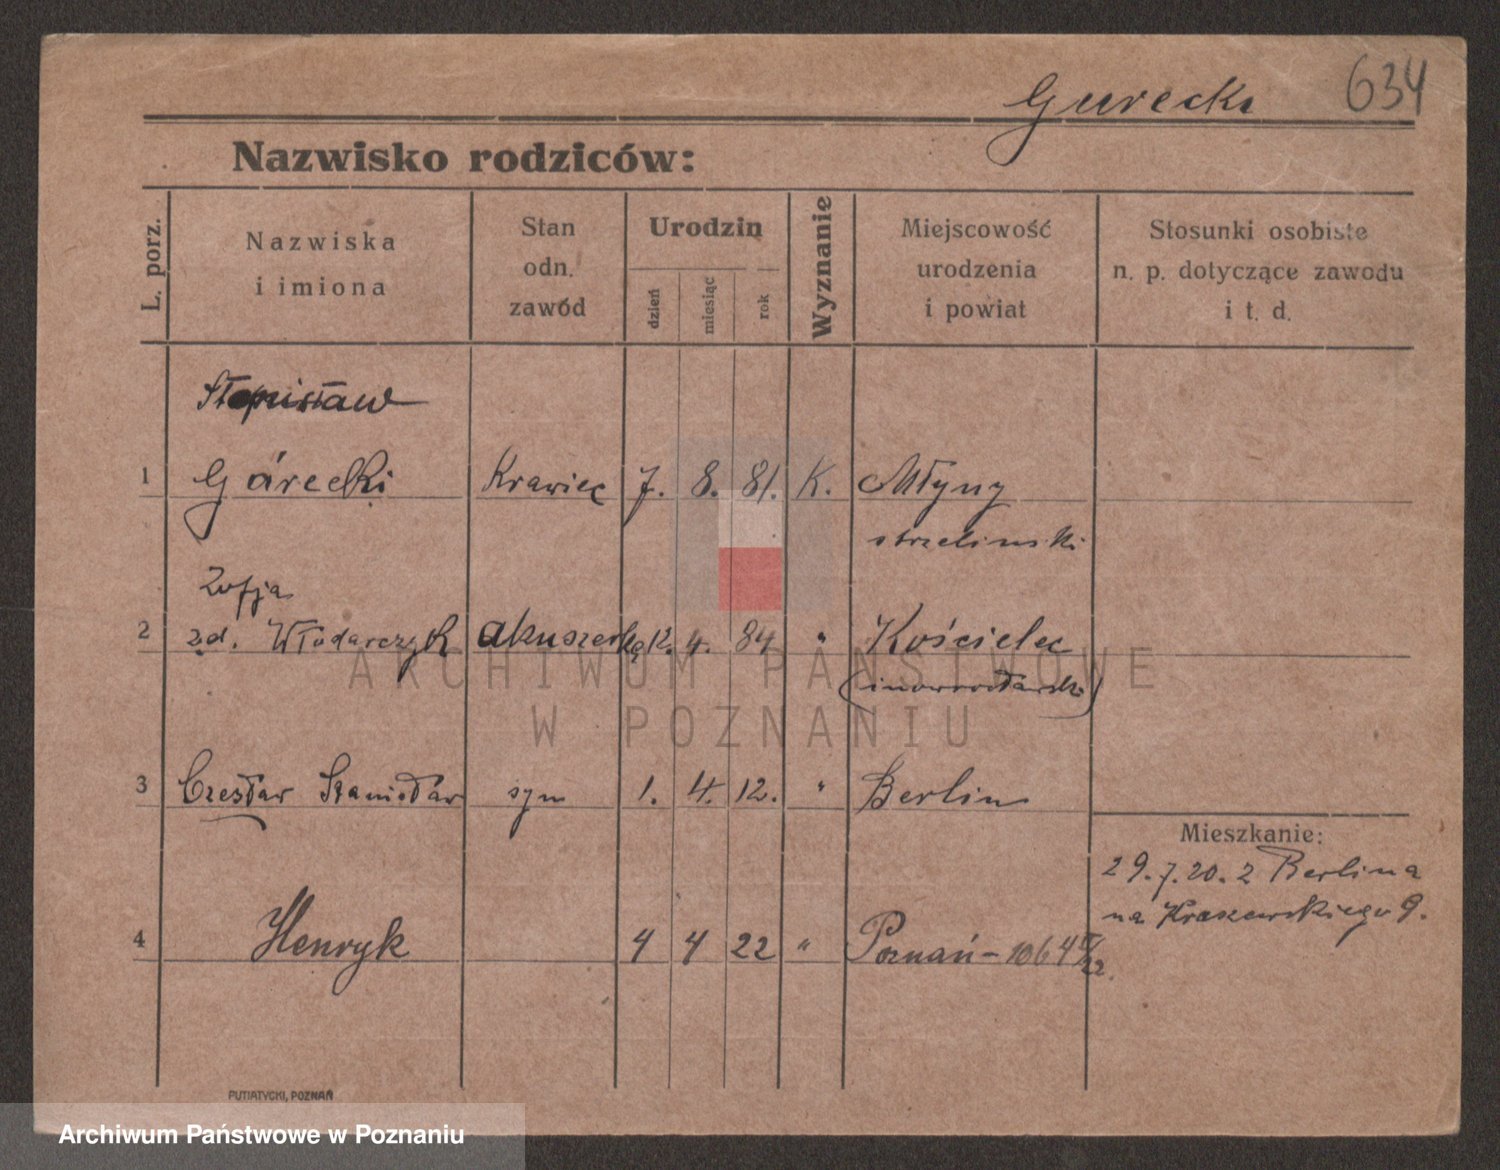 Gurecki 634
Nazwisko rodziców:
L. porz.
Nazwiska
i imiona
Stan
odn.
zawód
Urodzin
dzień
miesiąc
rok
Wyznanie
Miejscowość
urodzenia
i powiat
Stosunki osobiste
n. p. dotyczące zawodu
i t. d.
Stanisław
1 Górecki Krawiec 7. 8. 81. K. Młyny
strzelinski
Zofja
2 zd. Włodarczyk akuszerka 12. 4. 84 " Kościelec
(inowrocławski)
3 Czesław Stanisław syn 1. 4. 12. " Berlin
Mieszkanie:
29.7.20. z Berlina
na Kraszewskiego 9.
4 Henryk 4 4 22 " Poznań – 1064 V/22.
PUTIATYCKI, POZNAŃ
ARCHIWUM PAŃSTWOWE
W POZNANIU
Archiwum Państwowe w Poznaniu